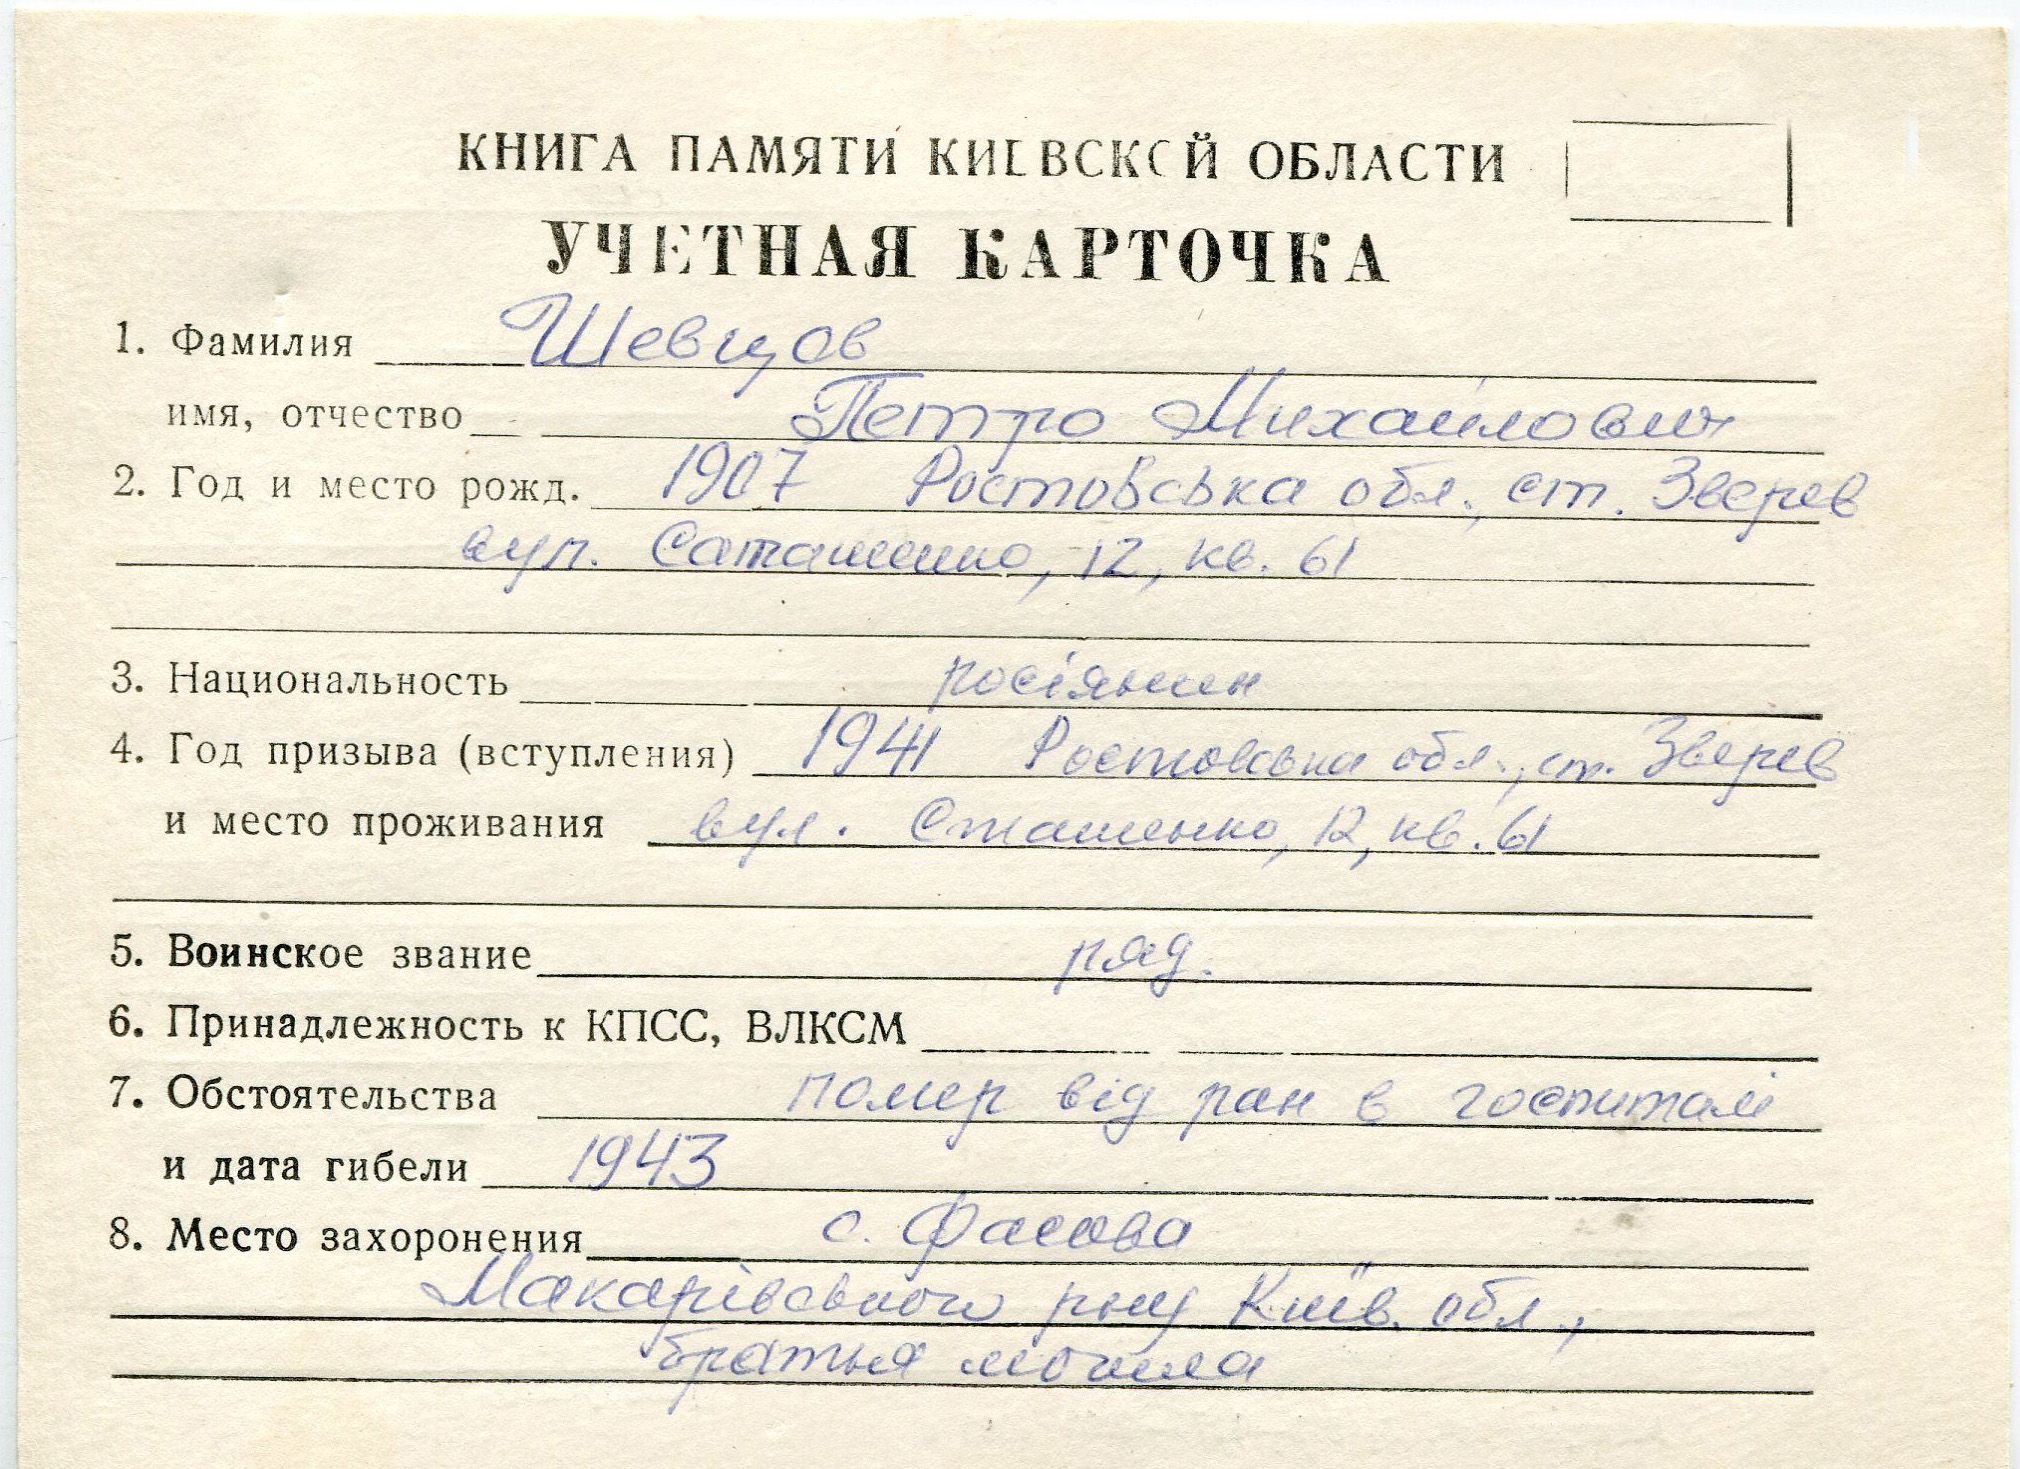 КНИГА ПАМЯТИ КИЕВСКОЙ ОБЛАСТИ
УЧЕТНАЯ КАРТОЧКА
1. Фамилия Шевцов
имя, отчество Петро Михайлович
2. Год и место рожд. 1907 Ростовська обл., ст. Зверев
вул. Сташенко, 12, кв. 61
3. Национальность росіянин
4. Год призыва (вступления) 1941 Ростовська обл., ст. Зверев
и место проживания вул. Сташенко, 12, кв. 61
5. Воинское звание ряд.
6. Принадлежность к КПСС, ВЛКСМ
7. Обстоятельства помер від ран в госпиталі
и дата гибели 1943
8. Место захоронения с. Фасова
Макарівського р-ну Київ. обл.,
братья могила